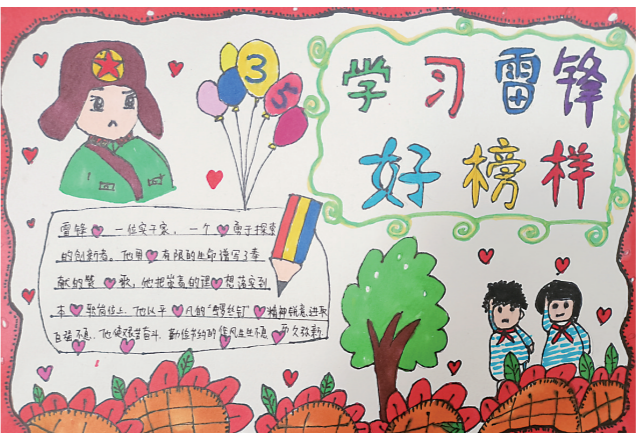 学习雷锋
好榜样
3
5
雷锋 一位实干家，一个 勇于探索
的创新者。他用 有限的生命谱写了奉
献的赞 歌，他把崇高的理 想落实到
本 职岗位上，他以平 凡的"螺丝钉" 精神锐意进取
自强不息，他使艰苦奋斗、勤俭节约的作风生生不息 历久弥新